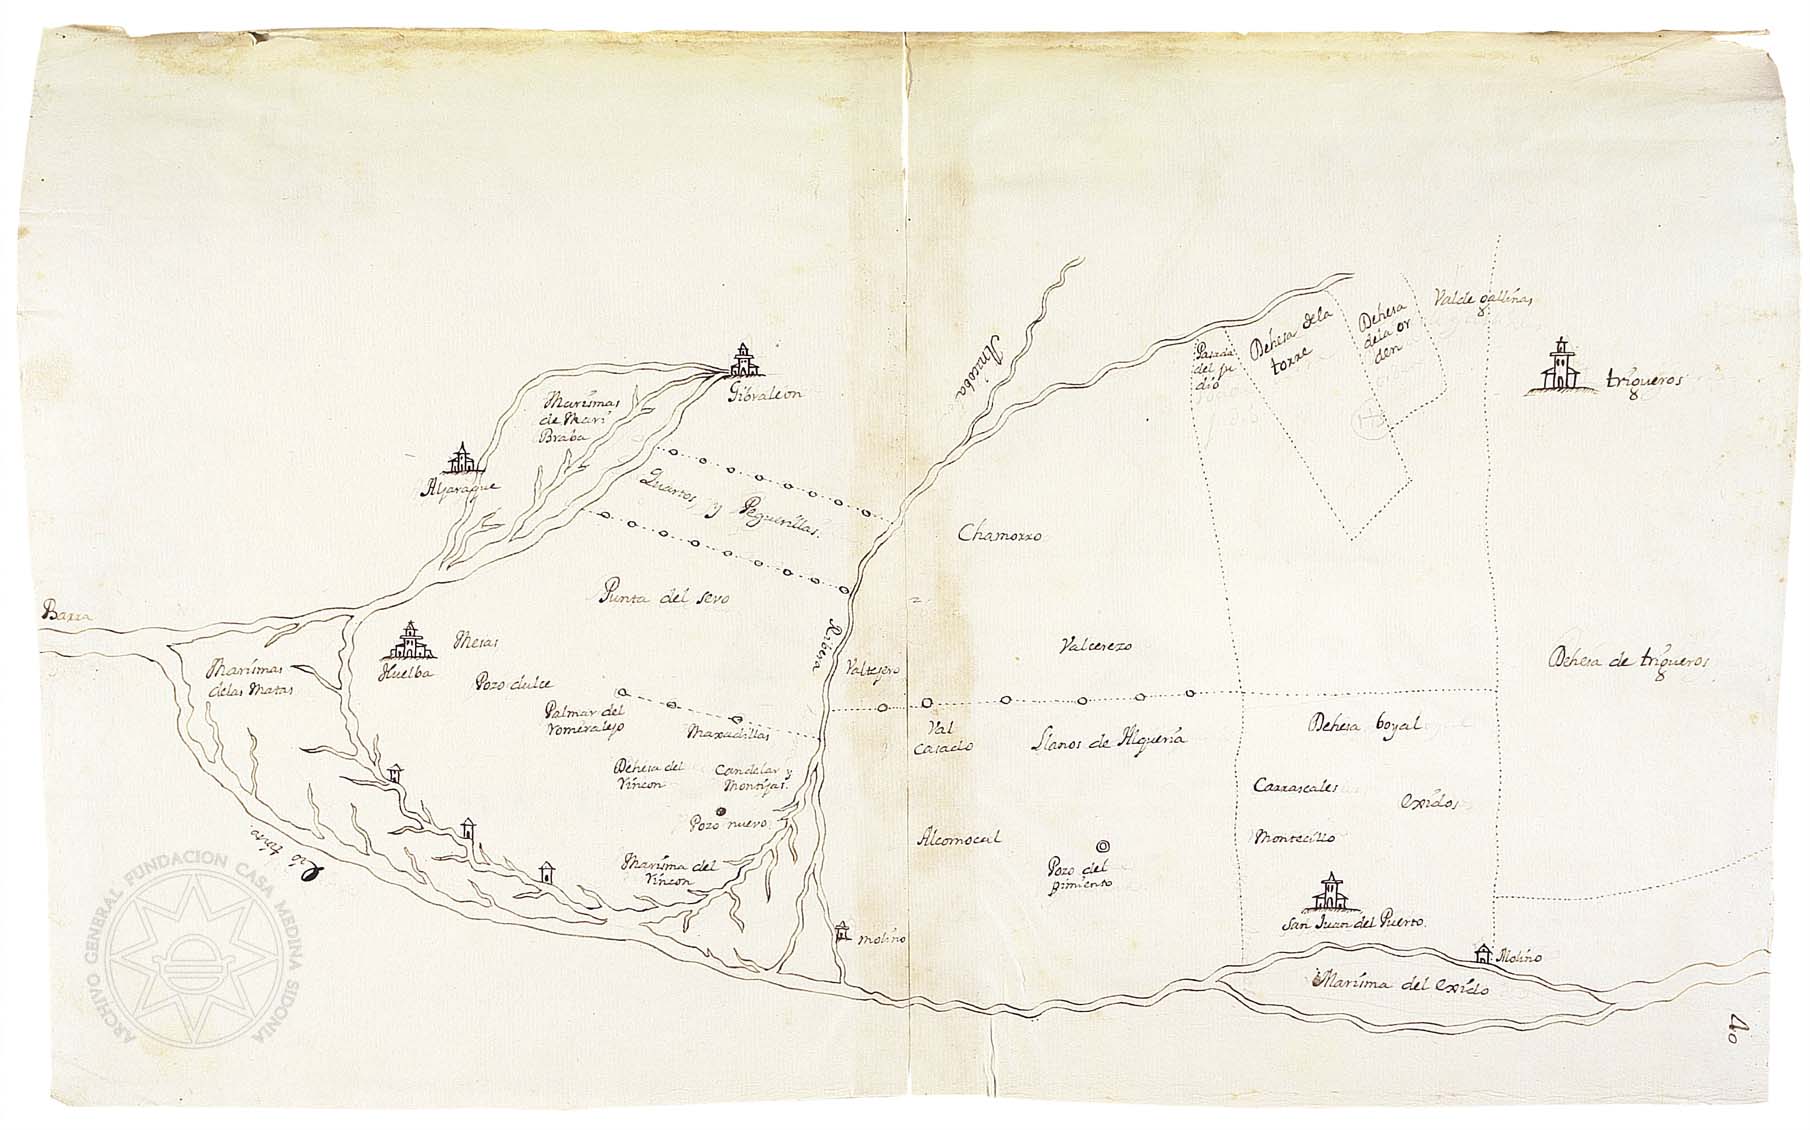 Gibraleon
Marismas
de Mari
Braba
Aljaraque
Quartos, y Peguerillas.
Anicoba
Pasada
del ju
dio
Dehesa de la
torre
Dehesa
dela or
den
Valde gallinas
trigueros
Chamorro
Barra
Punta del sevo
Huelba
Mesas
Pozo dulce
Marismas
delas Matas
Ribera
Valtejero
Valcerezo
Dehesa de trigueros
Palmar del
romeralejo
Maradillas
Val
Casado
Llanos de Alqueria
Dehesa boyal
Dehesa del
rincon
Candelar y
Montijas.
Pozo nuevo
Carrascales
exidos
Alcornocal
Montecillo
Marisma del
rincon
Pozo del
pimiento
San Juan del Puerto.
molino
Molino
Marisma del exido
40
ARCHIVO GENERAL FUNDACION CASA MEDINA SIDONIA